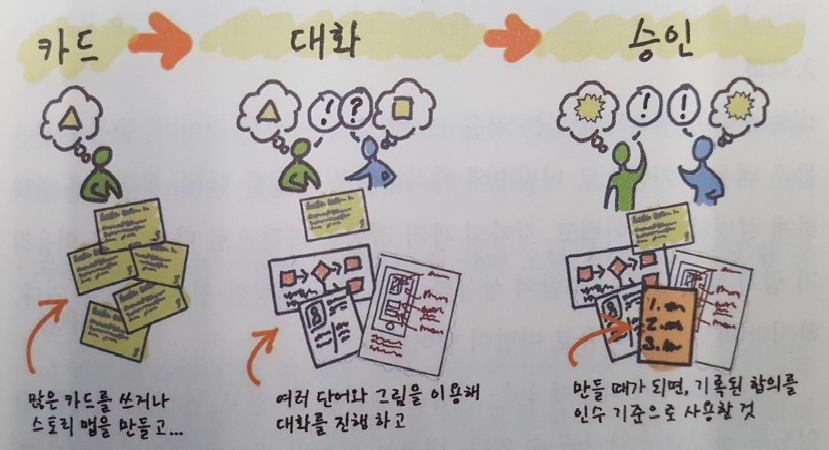 카드
대화
승인
! ?
! !
많은 카드를 쓰거나
스토리 맵을 만들고...
여러 단어와 그림을 이용해
대화를 진행하고
1.
2.
3.
만들 때가 되면, 기록된 합의를
인수 기준으로 사용할 것